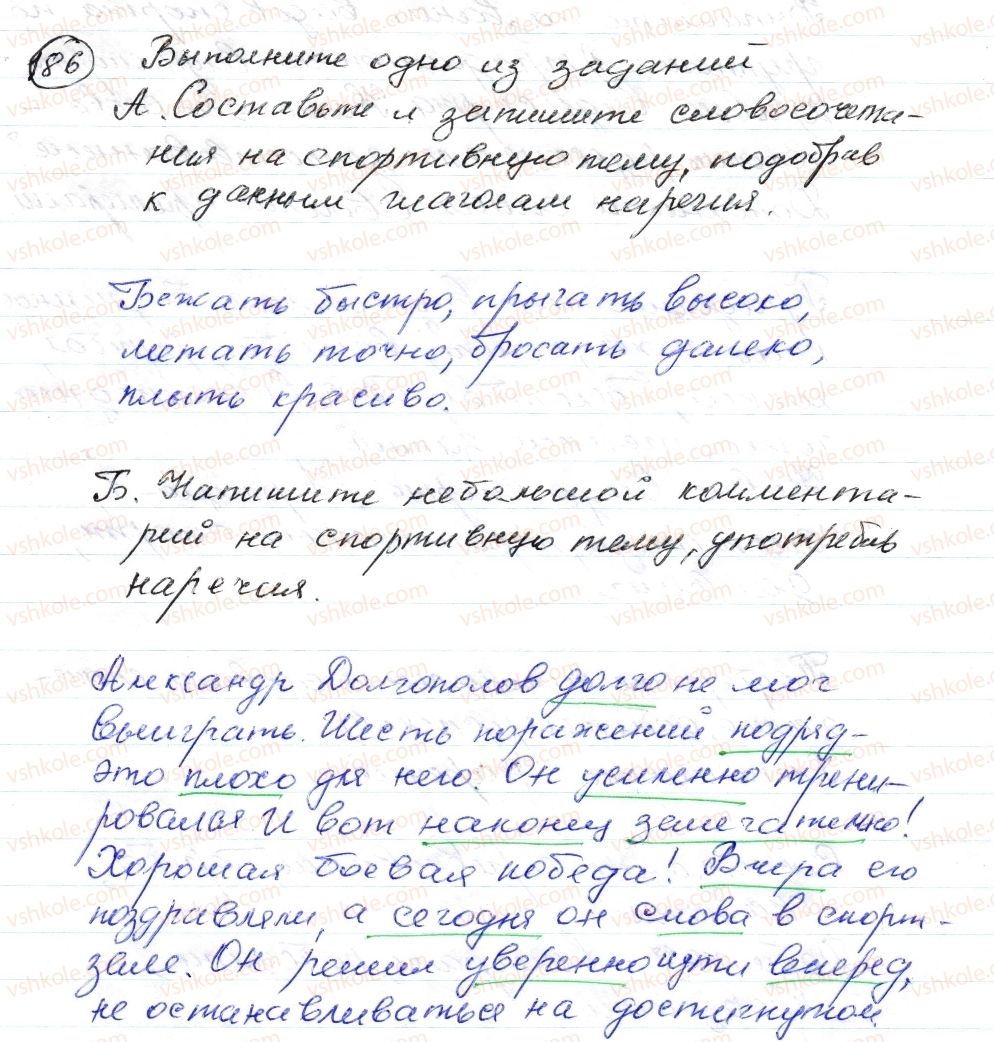 186 Выполните одно из заданий
А. Составьте и запишите словосочета-
ния на спортивную тему, подобрав
к данным глаголам наречия.
Бежать быстро, прыгать высоко,
метать точно, бросать далеко,
плыть красиво.
Б. Напишите небольшой коммента-
рий на спортивную тему, употребив
наречия.
Александр Долгополов долго не мог
выиграть. Шесть поражений подряд -
это плохо для него. Он усиленно трени-
ровался И вот наконец замечательно!
Хорошая боевая победа! Вчера его
поздравляли, а сегодня он снова в спорт-
зале. Он решил уверенно идти вперед,
не останавливаться на достигнутом